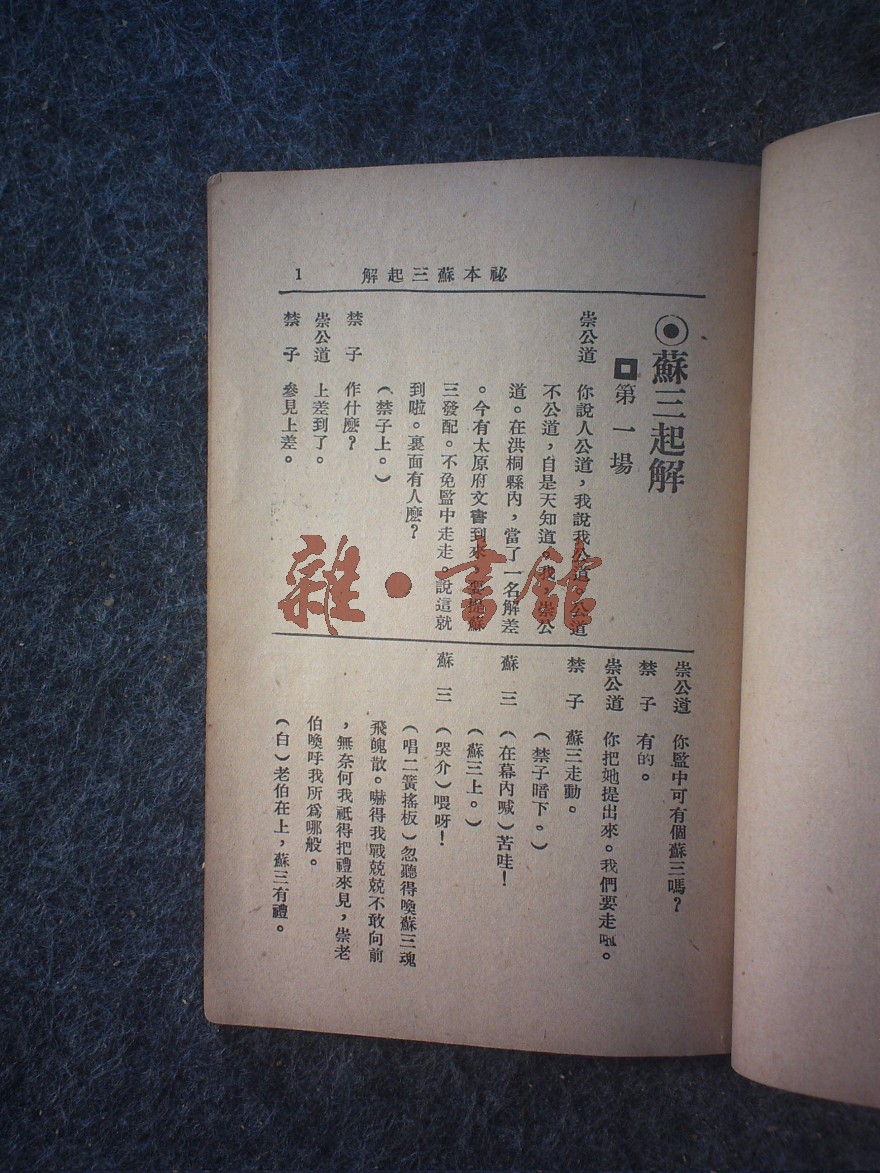 祕本蘇三起解
1
◉蘇三起解
第一場
崇公道 你說人公道，我說我公道。公道
不公道，自是天知道。我 崇公
道。在洪桐縣內，當了一名解差
。今有太原府文書到來，要提蘇
三發配。不免監中走走。說這就
到啦。裏面有人麽？
（禁子上。）
禁子 作什麽？
崇公道 上差到了。
禁子 參見上差。
崇公道 你監中可有個蘇三嗎？
禁子 有的。
崇公道 你把她提出來。我們要走啦。
禁子 蘇三走動。
（禁子喑下。）
蘇三 （在幕內喊）苦哇！
（蘇三上。）
蘇三 （哭介）喂呀！
（唱二簧搖板）忽聽得喚蘇三魂
飛魄散。嚇得我戰兢兢不敢向前
，無奈何我祗得把禮來見，崇老
伯喚呼我所爲哪般。
（白）老伯在上，蘇三有禮。
雜·書館